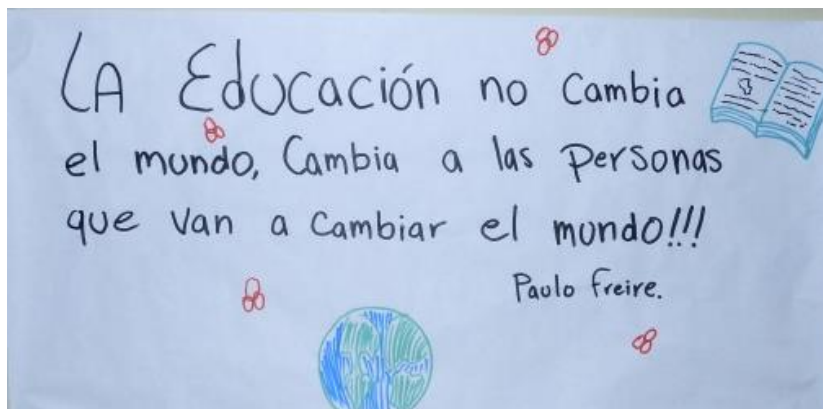 LA Educación no cambia
el mundo, Cambia a las personas
que van a cambiar el mundo!!!
Paulo freire.